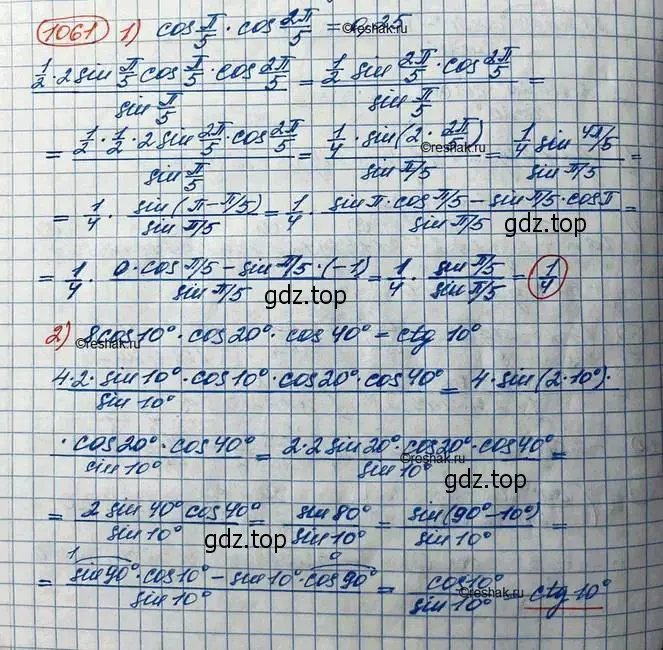 1061 1) cos π/5 · cos 2π/5 = 0,25
(1/2 · 2 sin π/5 cos π/5 · cos 2π/5)/(sin π/5) = (1/2 sin 2π/5 · cos 2π/5)/(sin π/5) =
= (1/2 · 1/2 · 2 sin 2π/5 · cos 2π/5)/(sin π/5) = (1/4 · sin(2 · 2π/5))/(sin π/5) = (1/4 sin 4π/5)/(sin π/5) =
©reshak.ru
= 1/4 · (sin(π - π/5))/(sin π/5) = 1/4 · (sin π · cos π/5 - sin π/5 · cos π)/(sin π/5) =
gdz.top
= 1/4 · (0 · cos π/5 - sin π/5 · (-1))/(sin π/5) = 1/4 · (sin π/5)/(sin π/5) = 1/4
gdz.top
2) 8cos10° · cos20° · cos40° = ctg 10°
©reshak.ru
(4·2· sin10° · cos10° · cos20° · cos40°)/(sin 10°) = 4 · sin(2·10°) ·
(· cos20° · cos40°)/(sin10°) = (2·2 sin20° · cos20° · cos40°)/(sin10°) =
©reshak.ru
= (2 sin 40° cos 40°)/(sin 10°) = (sin 80°)/(sin 10°) = (sin(90° - 10°))/(sin 10°) =
gdz.top
1 0
= (sin90° · cos10° - sin10° · cos90°)/(sin 10°) = (cos10°)/(sin10°) = ctg 10°
©reshak.ru
gdz.top